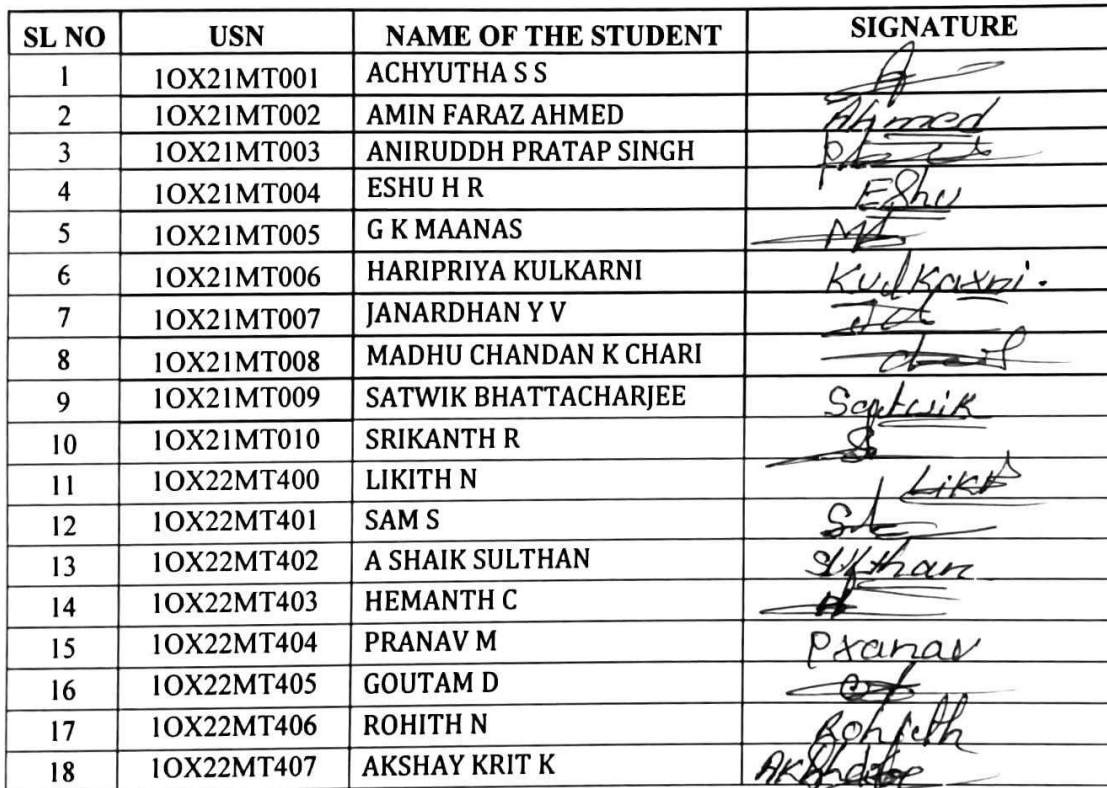 SL NO USN NAME OF THE STUDENT SIGNATURE
1 1OX21MT001 ACHYUTHA S S
2 1OX21MT002 AMIN FARAZ AHMED Ahmed
3 1OX21MT003 ANIRUDDH PRATAP SINGH
4 1OX21MT004 ESHU H R Eshu
5 1OX21MT005 G K MAANAS
6 1OX21MT006 HARIPRIYA KULKARNI Kulkarni.
7 1OX21MT007 JANARDHAN Y V
8 1OX21MT008 MADHU CHANDAN K CHARI
9 1OX21MT009 SATWIK BHATTACHARJEE Satwik
10 1OX21MT010 SRIKANTH R
11 1OX22MT400 LIKITH N
12 1OX22MT401 SAM S
13 1OX22MT402 A SHAIK SULTHAN Sulthan
14 1OX22MT403 HEMANTH C
15 1OX22MT404 PRANAV M Pranav
16 1OX22MT405 GOUTAM D
17 1OX22MT406 ROHITH N Rohith
18 1OX22MT407 AKSHAY KRIT K